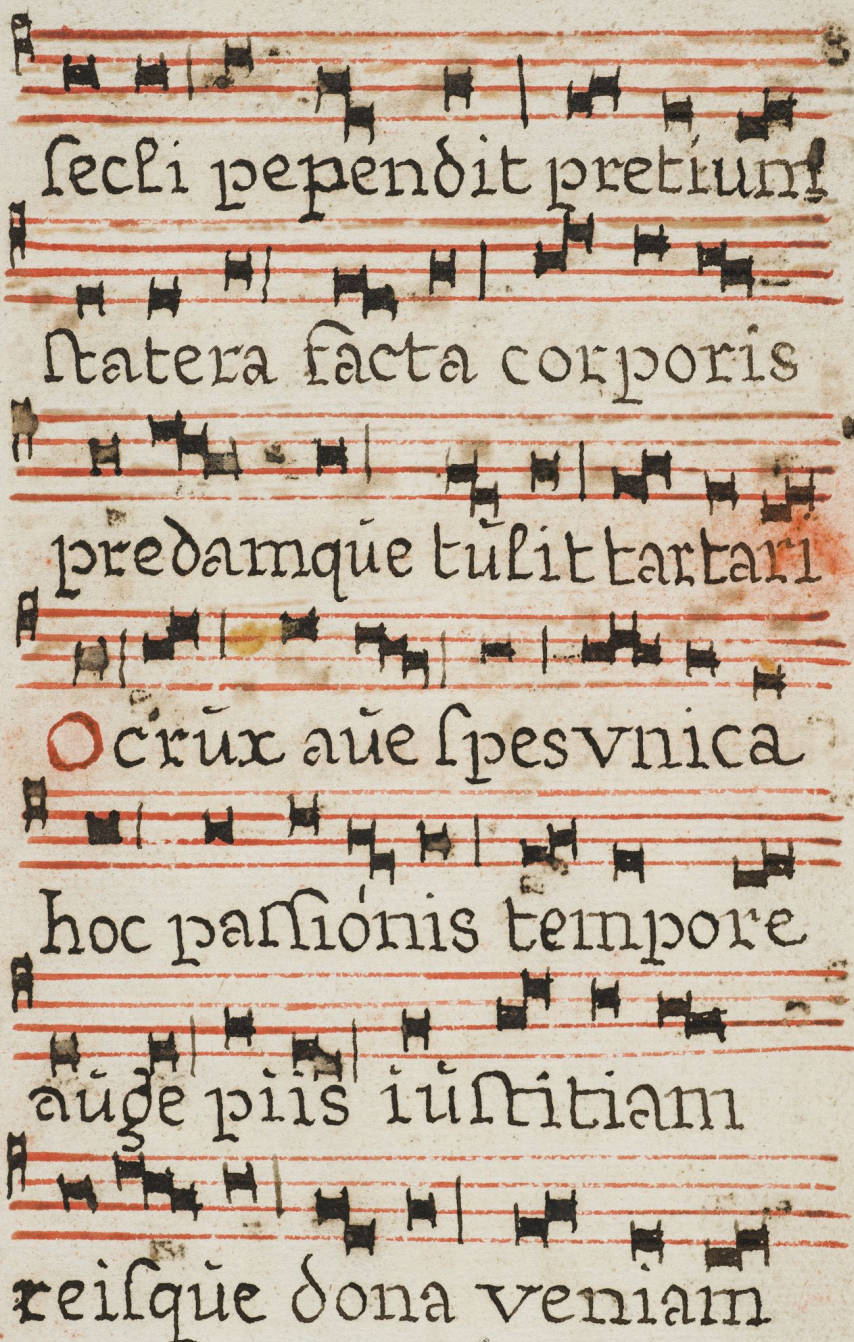 ſecli pependit pretium
ſtatera facta corporis
predamqūe tūlit tartari
O crūx aūe ſpes vnica
hoc paſſiónis tempore
aūge piis iūſtitiam
reiſqūe dona veniam